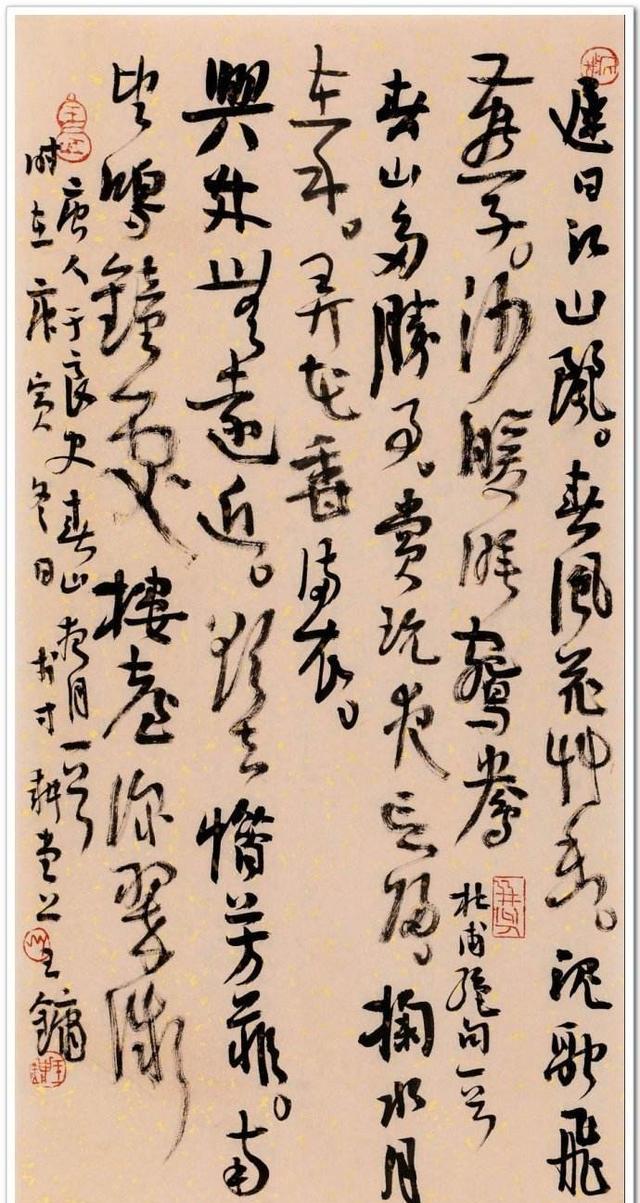 遲日江山麗。春風花艸香。泥融飛
燕子。沙暖睡鴛鴦
杜甫絕句一首
春山多勝事。賞玩夜忘歸。掬水月
在手。弄花香滿衣。
興來無遠近。欲去惜芳菲。南
望鳴鐘處樓臺深翠微
唐人于良史春山夜月一首
時在庚寅冬日於寸耕堂上王鏞